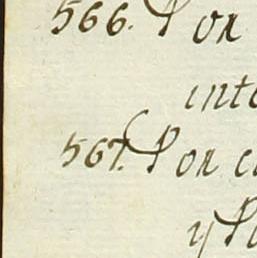 566. Por
inte
567. Por c
y P